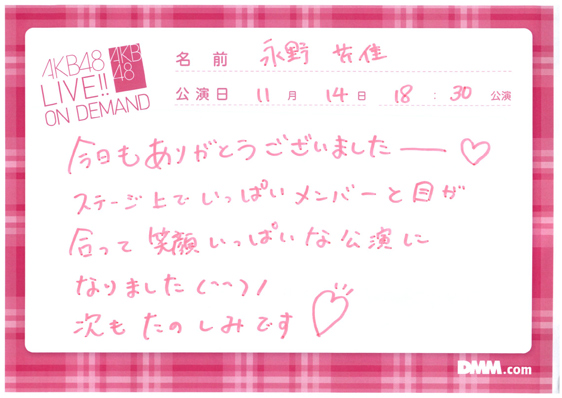 AKB48
LIVE!!
ON DEMAND
AKB
48
名前 永野 芹佳
公演日 11月 14日 18:30 公演
今日もありがとうございましたー♡
ステージ上でいっぱいメンバーと目が
合って笑顔いっぱいな公演に
なりました(^^)!
次もたのしみです♡
DMM.com